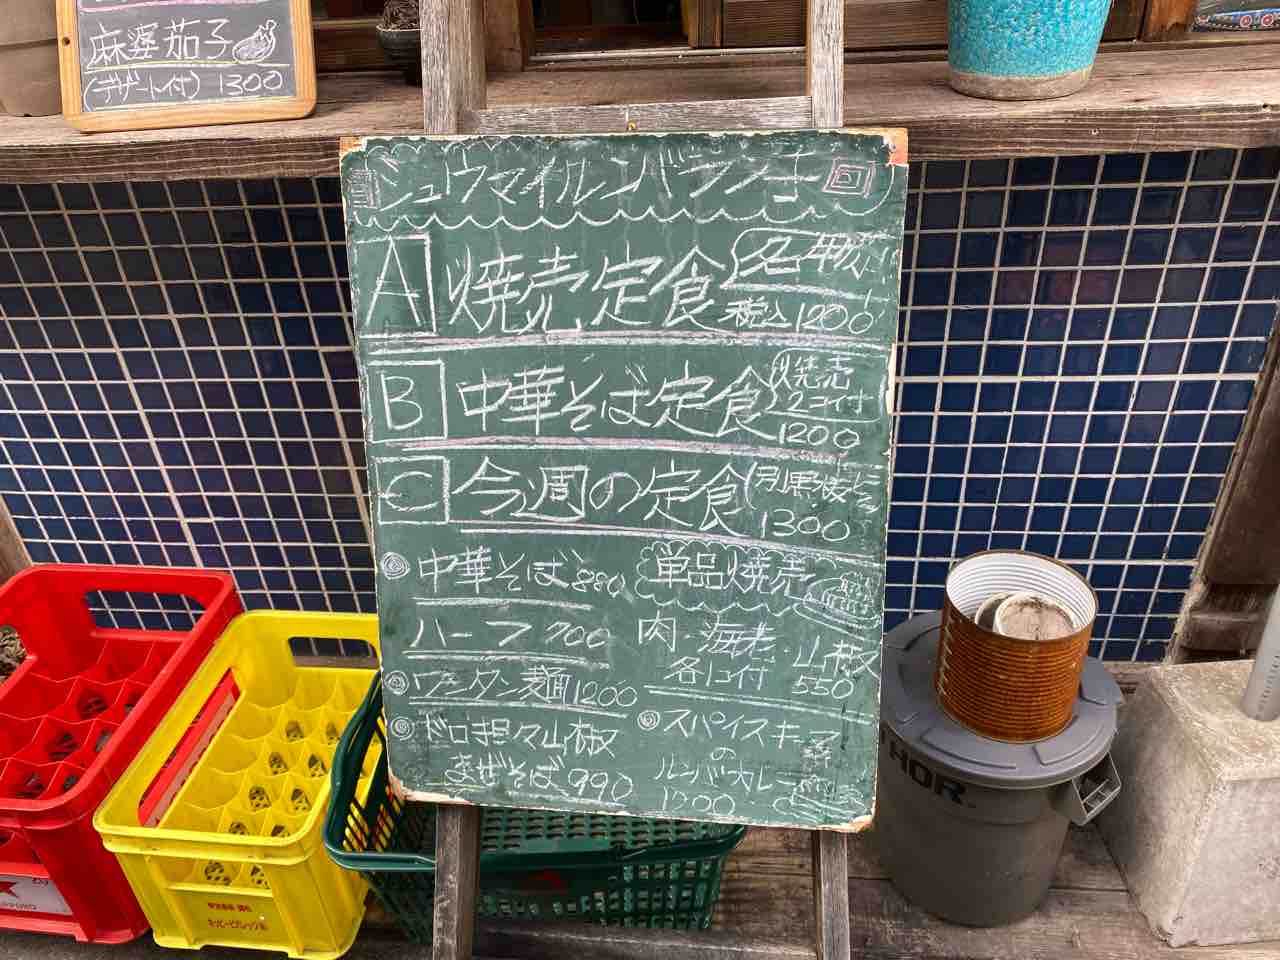 麻婆茄子
(デザート付) 1300
シュウマイルンバランチ
A 焼売定食 名物
税込 1200
B 中華そば定食 焼売
2コ付
1200
C 今週の定食
1300
◎中華そば 880
ハーフ 700
◎ワンタン麺 1200
◎ドロ担々山椒
まぜそば 990
単品焼売
肉・海老・山椒
各1コ付 550
◎スパイスキーマ
の
ルンバカレー
1200
THOR